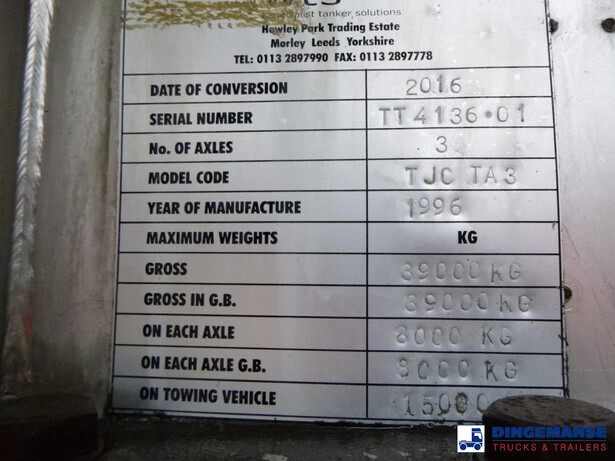 tanker solutions
Howley Park Trading Estate
Morley Leeds Yorkshire
TEL: 0113 2897990 FAX: 0113 2897778
DATE OF CONVERSION 2016
SERIAL NUMBER TT4136•01
No. OF AXLES 3
MODEL CODE TJC TA3
YEAR OF MANUFACTURE 1996
MAXIMUM WEIGHTS KG
GROSS 39000KG
GROSS IN G.B. 39000KG
ON EACH AXLE 8000 KG
ON EACH AXLE G.B. 8000 KG
ON TOWING VEHICLE 15000
DINGEMANSE
TRUCKS & TRAILERS